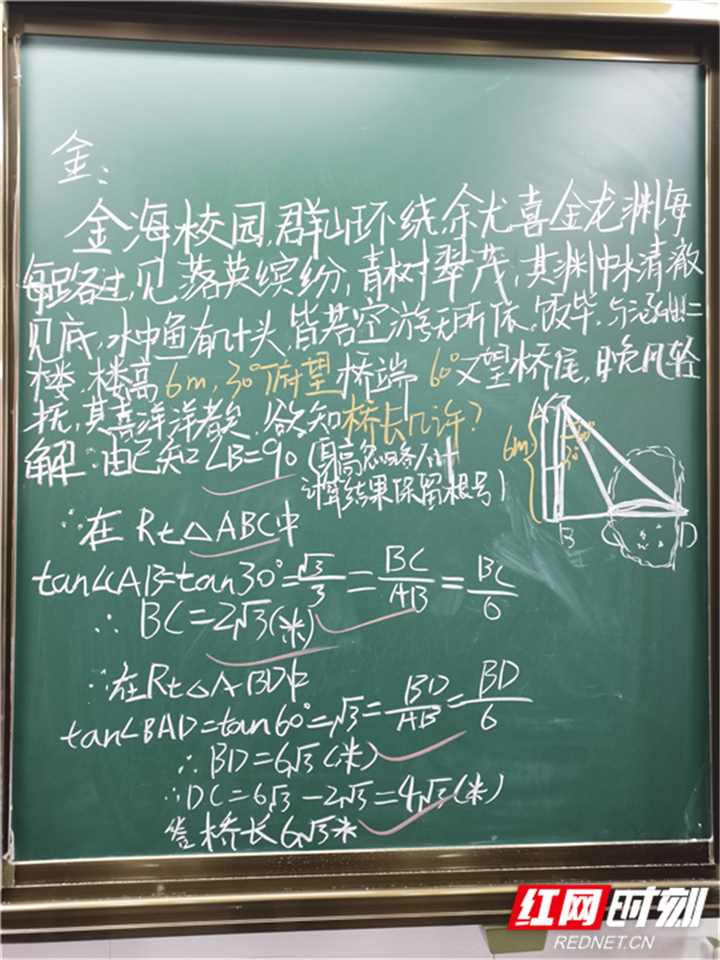 金:
金海校园,群山环绕,余尤喜金龙渊,每
每路过,见落英缤纷,青树翠茂,其渊中水清澈
见底,水中鱼有几十头,皆若空游无所依,饭毕,
楼,楼高6m,30°俯望桥端 60°又望桥尾,晚风轻
抚,其喜洋洋者矣,欲知桥长几许?
解:由已知∠B=90(身高忽略不计
计算结果保留根号)
∵在Rt△ABC中
tan∠CAB=tan30°=√3/3=BC/AB=BC/6
∴BC=2√3(米)
∵在Rt△ABD中
tan∠BAD=tan60°=√3=BD/AB=BD/6
∴BD=6√3(米)
∴DC=6√3-2√3=4√3(米)
答桥长6√3米
6m
30°
B
D
红网时刻
REDNET.CN